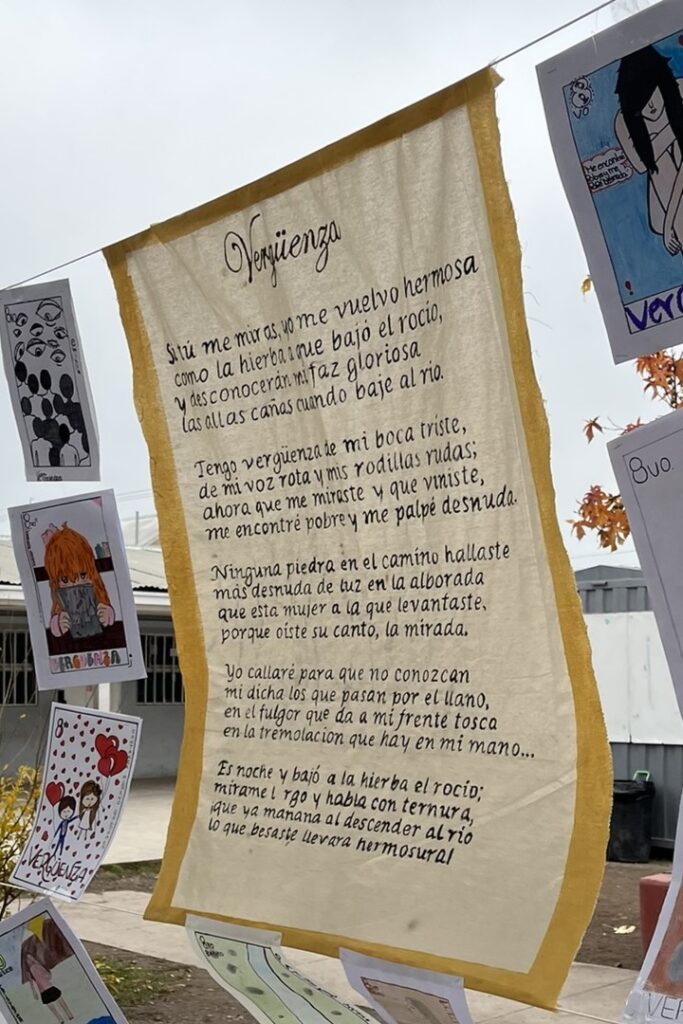 Vergüenza
Si tú me miras, yo me vuelvo hermosa
como la hierba a que bajó el rocío,
y desconocerán mi faz gloriosa
las altas cañas cuando baje al río.
Tengo vergüenza de mi boca triste,
de mi voz rota y mis rodillas rudas;
ahora que me miraste y que viniste,
me encontré pobre y me palpé desnuda.
Ninguna piedra en el camino hallaste
más desnuda de luz en la alborada
que esta mujer a la que levantaste,
porque oíste su canto, la mirada.
Yo callaré para que no conozcan
mi dicha los que pasan por el llano,
en el fulgor que da a mi frente tosca
en la tremolación que hay en mi mano...
Es noche y bajó a la hierba el rocío;
mírame l rgo y habla con ternura,
¡que ya mañana al descender al río
lo que besaste llevará hermosura!
VERGÜENZA
8°
VERGÜENZA
8vo
Me encontré
pobre y me
palpé desnuda
8vo.
VER